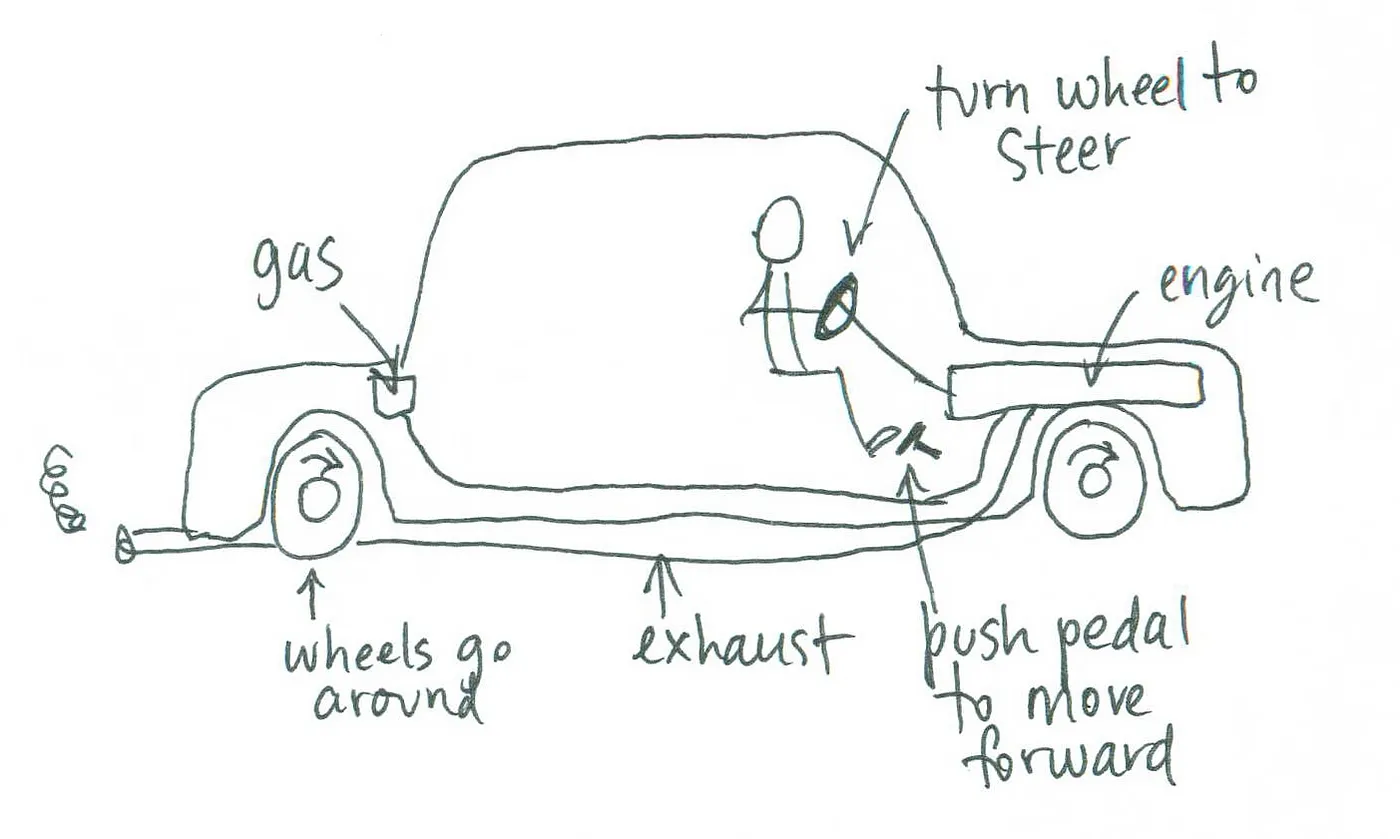 turn wheel to
steer
gas
engine
wheels go
around
exhaust
push pedal
to move
forward